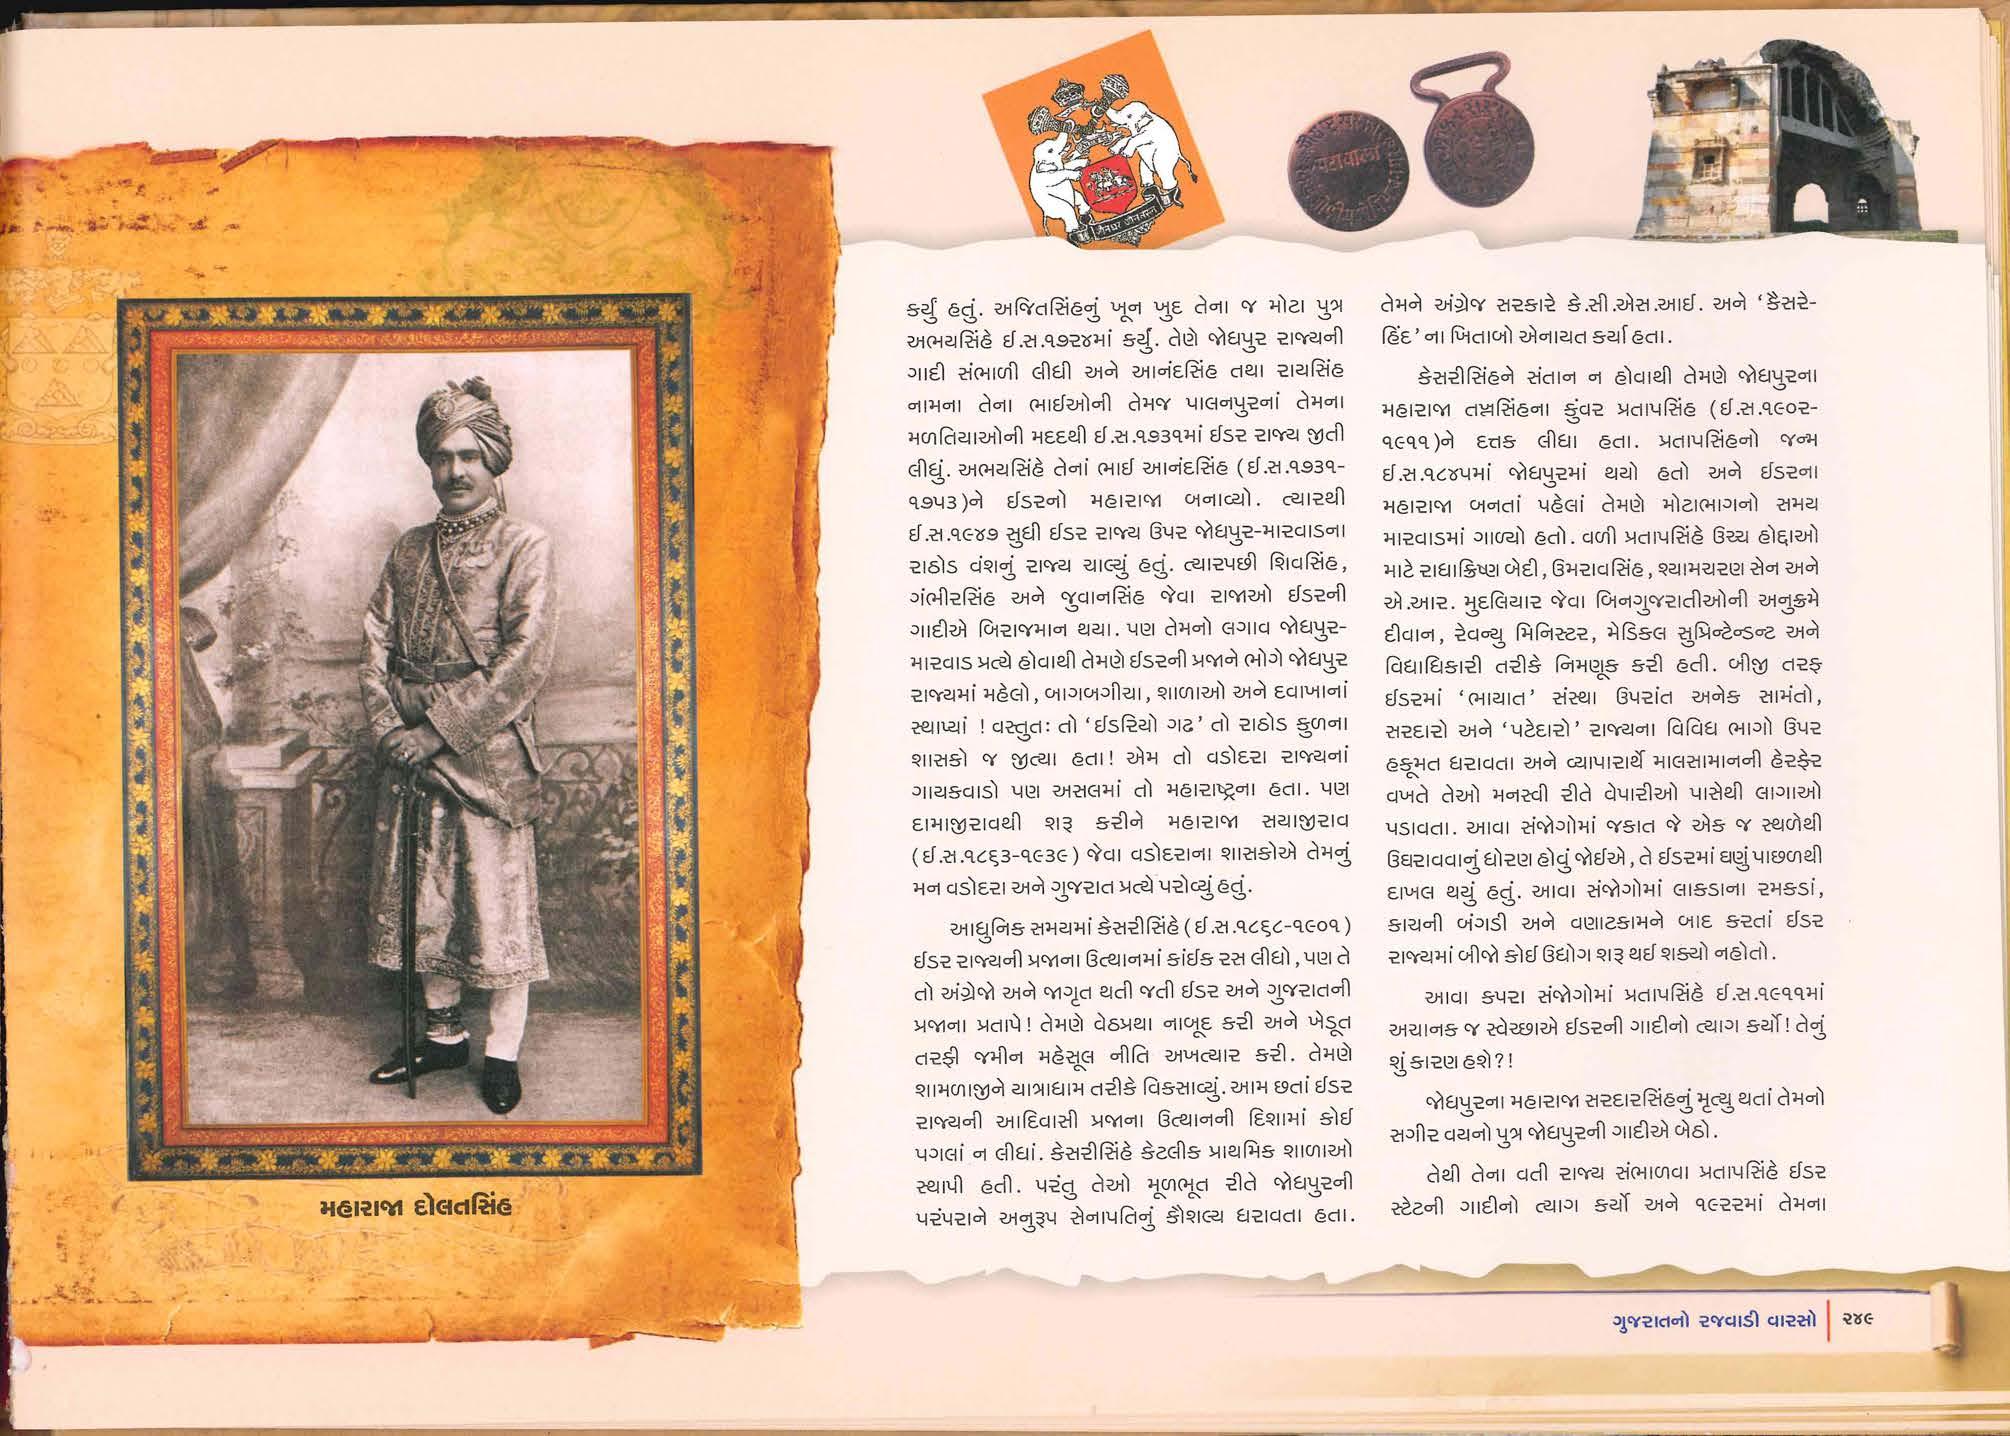 મહારાજા દોલતસિંહ
કર્યું હતું. અજિતસિંહનું ખૂન ખુદ તેના જ મોટા પુત્ર
અભયસિંહે ઈ.સ.૧૭૨૪માં કર્યું. તેણે જોધપુર રાજ્યની
ગાદી સંભાળી લીધી અને આનંદસિંહ તથા રાયસિંહ
નામના તેના ભાઈઓની તેમજ પાલનપુરનાં તેમના
મળતિયાઓની મદદથી ઈ.સ.૧૭૩૧માં ઈડર રાજ્ય જીતી
લીધું. અભયસિંહે તેનાં ભાઈ આનંદસિંહ (ઈ.સ.૧૭૩૧-
૧૭૫૩)ને ઈડરનો મહારાજા બનાવ્યો. ત્યારથી
ઈ.સ.૧૯૪૭ સુધી ઈડર રાજ્ય ઉપર જોધપુર-મારવાડના
રાઠોડ વંશનું રાજ્ય ચાલ્યું હતું. ત્યારપછી શિવસિંહ,
ગંભીરસિંહ અને જુવાનસિંહ જેવા રાજાઓ ઈડરની
ગાદીએ બિરાજમાન થયા. પણ તેમનો લગાવ જોધપુર-
મારવાડ પ્રત્યે હોવાથી તેમણે ઈડરની પ્રજાને ભોગે જોધપુર
રાજ્યમાં મહેલો, બાગબગીચા, શાળાઓ અને દવાખાનાં
સ્થાપ્યાં ! વસ્તુતઃ તો ‘ઈડરિયો ગઢ’ તો રાઠોડ કુળના
શાસકો જ જીત્યા હતા! એમ તો વડોદરા રાજ્યનાં
ગાયકવાડો પણ અસલમાં તો મહારાષ્ટ્રના હતા. પણ
દામાજીરાવથી શરૂ કરીને મહારાજા સયાજીરાવ
(ઈ.સ.૧૮૬૩-૧૯૩૯) જેવા વડોદરાના શાસકોએ તેમનું
મન વડોદરા અને ગુજરાત પ્રત્યે પરોવ્યું હતું.
આધુનિક સમયમાં કેસરીસિંહે (ઈ.સ.૧૮૬૮-૧૯૦૧)
ઈડર રાજ્યની પ્રજાના ઉત્થાનમાં કાંઈક રસ લીધો, પણ તે
તો અંગ્રેજો અને જાગૃત થતી જતી ઈડર અને ગુજરાતની
પ્રજાના પ્રતાપે! તેમણે વેઠપ્રથા નાબૂદ કરી અને ખેડૂત
તરફી જમીન મહેસૂલ નીતિ અખત્યાર કરી. તેમણે
શામળાજીને યાત્રાધામ તરીકે વિકસાવ્યું. આમ છતાં ઈડર
રાજ્યની આદિવાસી પ્રજાના ઉત્થાનની દિશામાં કોઈ
પગલાં ન લીધાં. કેસરીસિંહે કેટલીક પ્રાથમિક શાળાઓ
સ્થાપી હતી. પરંતુ તેઓ મૂળભૂત રીતે જોધપુરની
પરંપરાને અનુરૂપ સેનાપતિનું કૌશલ્ય ધરાવતા હતા.
તેમને અંગ્રેજ સરકારે કે.સી.એસ.આઈ. અને ‘કૈસરે-
હિંદ’ના ખિતાબો એનાયત કર્યા હતા.
કેસરીસિંહને સંતાન ન હોવાથી તેમણે જોધપુરના
મહારાજા તખ્તસિંહના કુંવર પ્રતાપસિંહ (ઈ.સ.૧૯૦૨-
૧૯૧૧)ને દત્તક લીધા હતા. પ્રતાપસિંહનો જન્મ
ઈ.સ.૧૮૪૫માં જોધપુરમાં થયો હતો અને ઈડરના
મહારાજા બનતાં પહેલાં તેમણે મોટાભાગનો સમય
મારવાડમાં ગાળ્યો હતો. વળી પ્રતાપસિંહે ઉચ્ચ હોદ્દાઓ
માટે રાધાક્રિષ્ણ બેદી, ઉમરાવસિંહ, શ્યામચરણ સેન અને
એ.આર. મુદલિયાર જેવા બિનગુજરાતીઓની અનુક્રમે
દીવાન, રેવન્યુ મિનિસ્ટર, મેડિકલ સુપ્રિન્ટેન્ડન્ટ અને
વિદ્યાધિકારી તરીકે નિમણૂક કરી હતી. બીજી તરફ
ઈડરમાં ‘ભાયાત’ સંસ્થા ઉપરાંત અનેક સામંતો,
સરદારો અને ‘પટેદારો’ રાજ્યના વિવિધ ભાગો ઉપર
હકૂમત ધરાવતા અને વ્યાપારાર્થે માલસામાનની હેરફેર
વખતે તેઓ મનસ્વી રીતે વેપારીઓ પાસેથી લાગાઓ
પડાવતા. આવા સંજોગોમાં જકાત જે એક જ સ્થળેથી
ઉઘરાવવાનું ધોરણ હોવું જોઈએ, તે ઈડરમાં ઘણું પાછળથી
દાખલ થયું હતું. આવા સંજોગોમાં લાકડાના રમકડાં,
કાચની બંગડી અને વણાટકામને બાદ કરતાં ઈડર
રાજ્યમાં બીજો કોઈ ઉદ્યોગ શરૂ થઈ શક્યો નહોતો.
આવા કપરા સંજોગોમાં પ્રતાપસિંહે ઈ.સ.૧૯૧૧માં
અચાનક જ સ્વેચ્છાએ ઈડરની ગાદીનો ત્યાગ કર્યો! તેનું
શું કારણ હશે?!
જોધપુરના મહારાજા સરદારસિંહનું મૃત્યુ થતાં તેમનો
સગીર વયનો પુત્ર જોધપુરની ગાદીએ બેઠો.
તેથી તેના વતી રાજ્ય સંભાળવા પ્રતાપસિંહે ઈડર
સ્ટેટની ગાદીનો ત્યાગ કર્યો અને ૧૯૨૨માં તેમના
ગુજરાતનો રજવાડી વારસો ૨૪૯